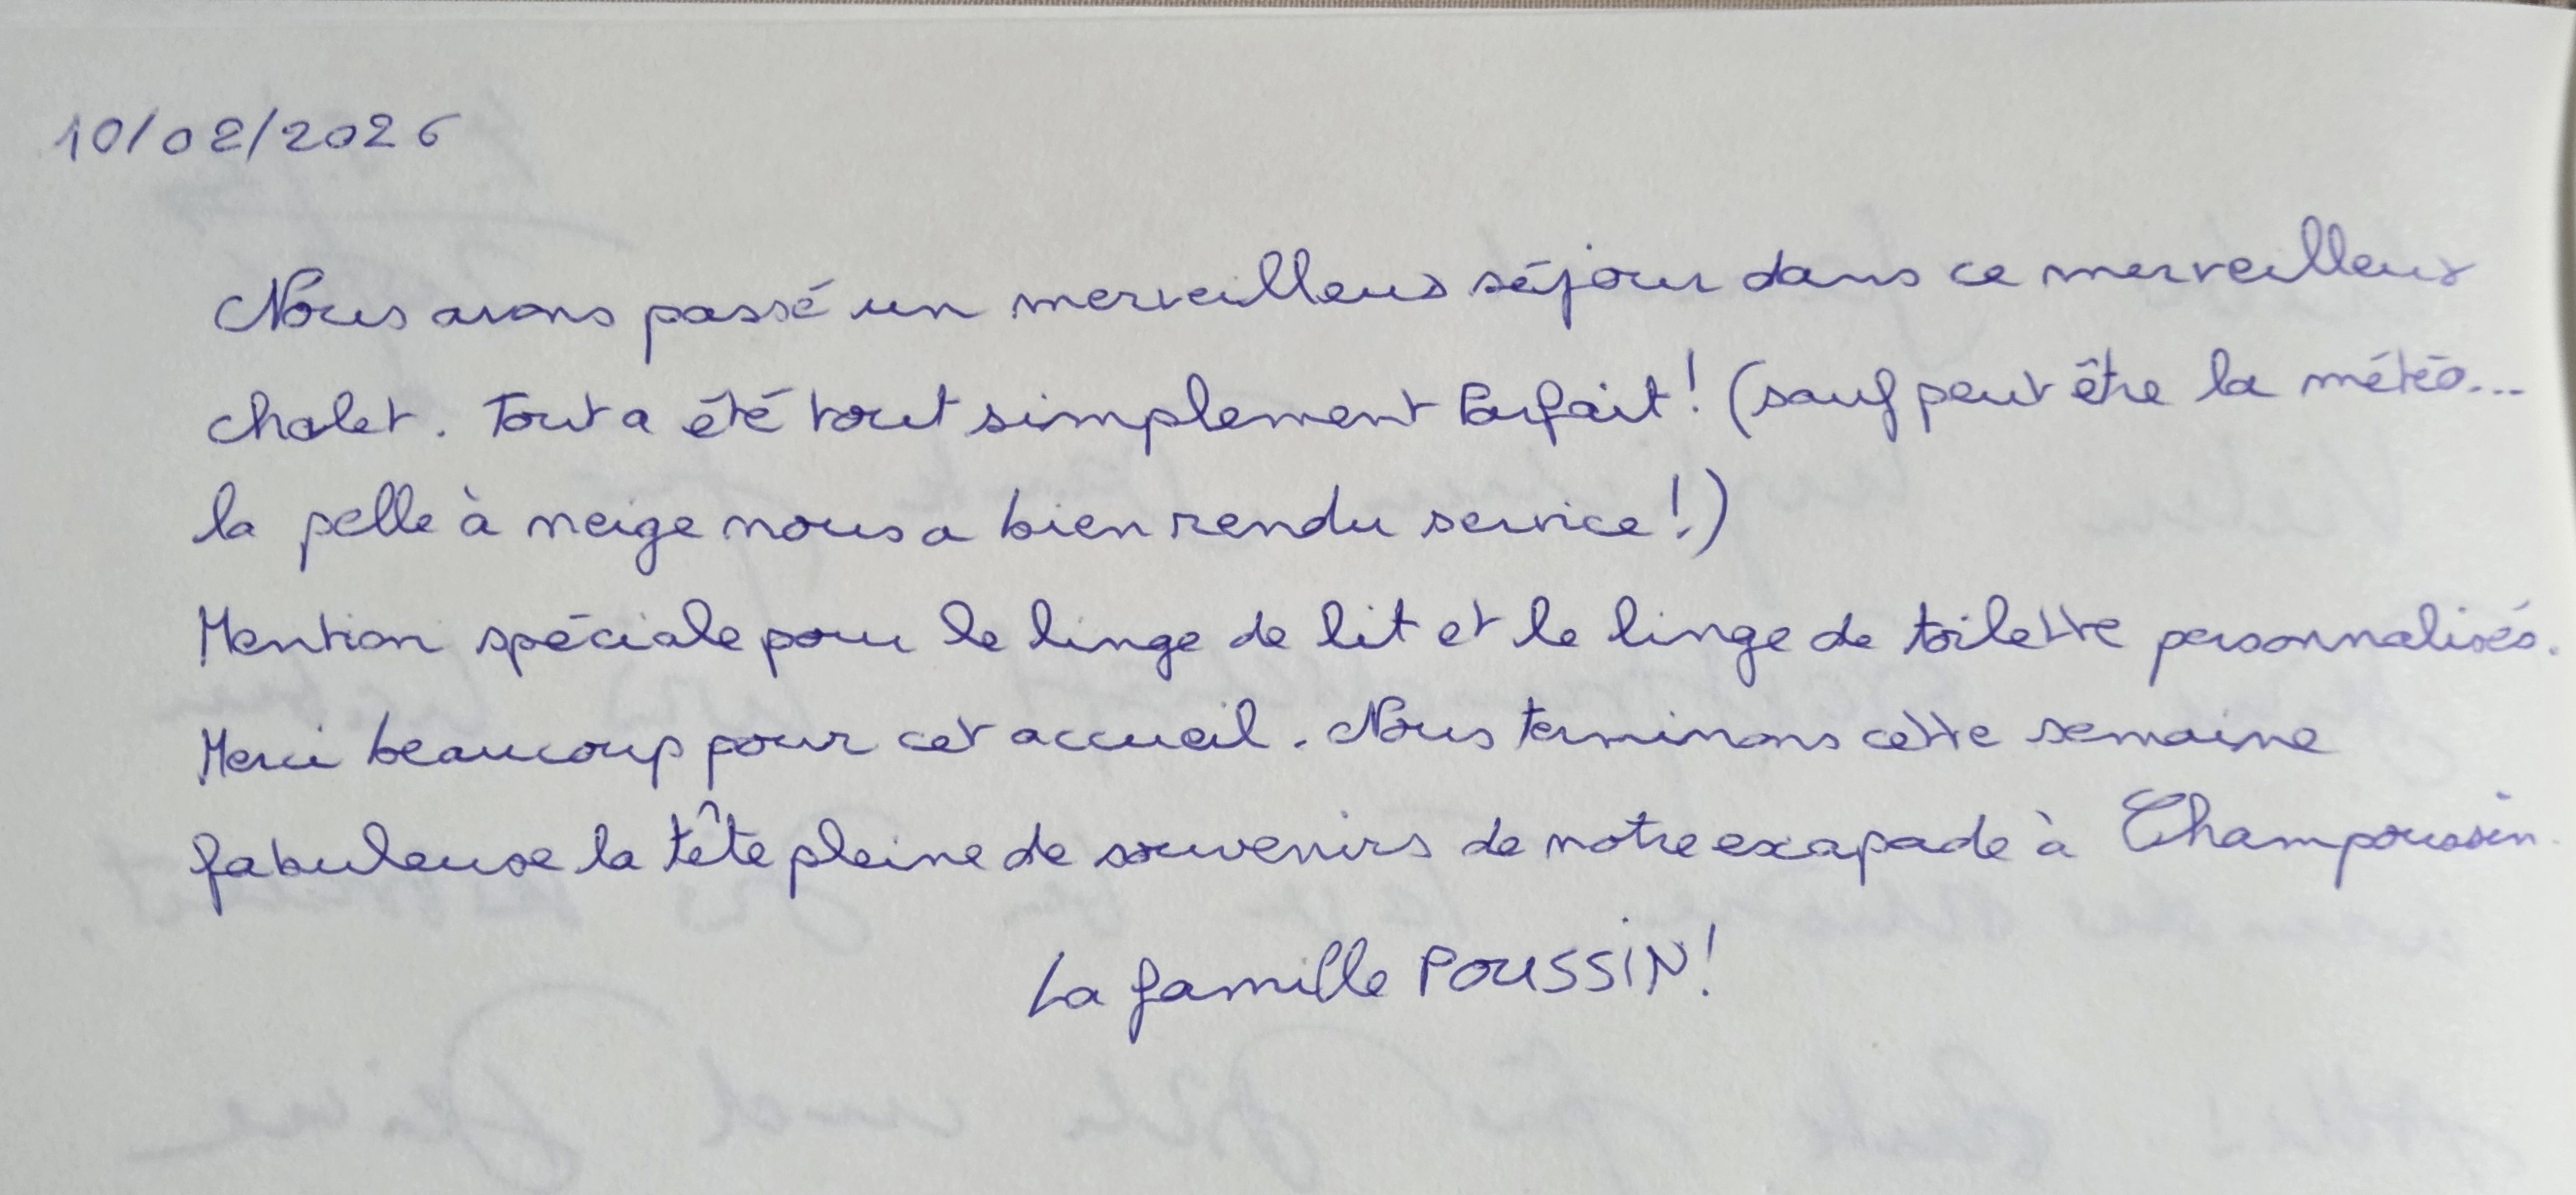 10/02/2026
Nous avons passé un merveilleux séjour dans ce merveilleux
chalet. Tout a été tout simplement Parfait! (sauf peut être la météo...
la pelle à neige nous a bien rendu service!)
Mention spéciale pour le linge de lit et le linge de toilette personnalisés.
Merci beaucoup pour cet accueil. Nous terminons cette semaine
fabuleuse la tête pleine de souvenirs de notre exapade à Champoussin.
La famille POUSSIN!